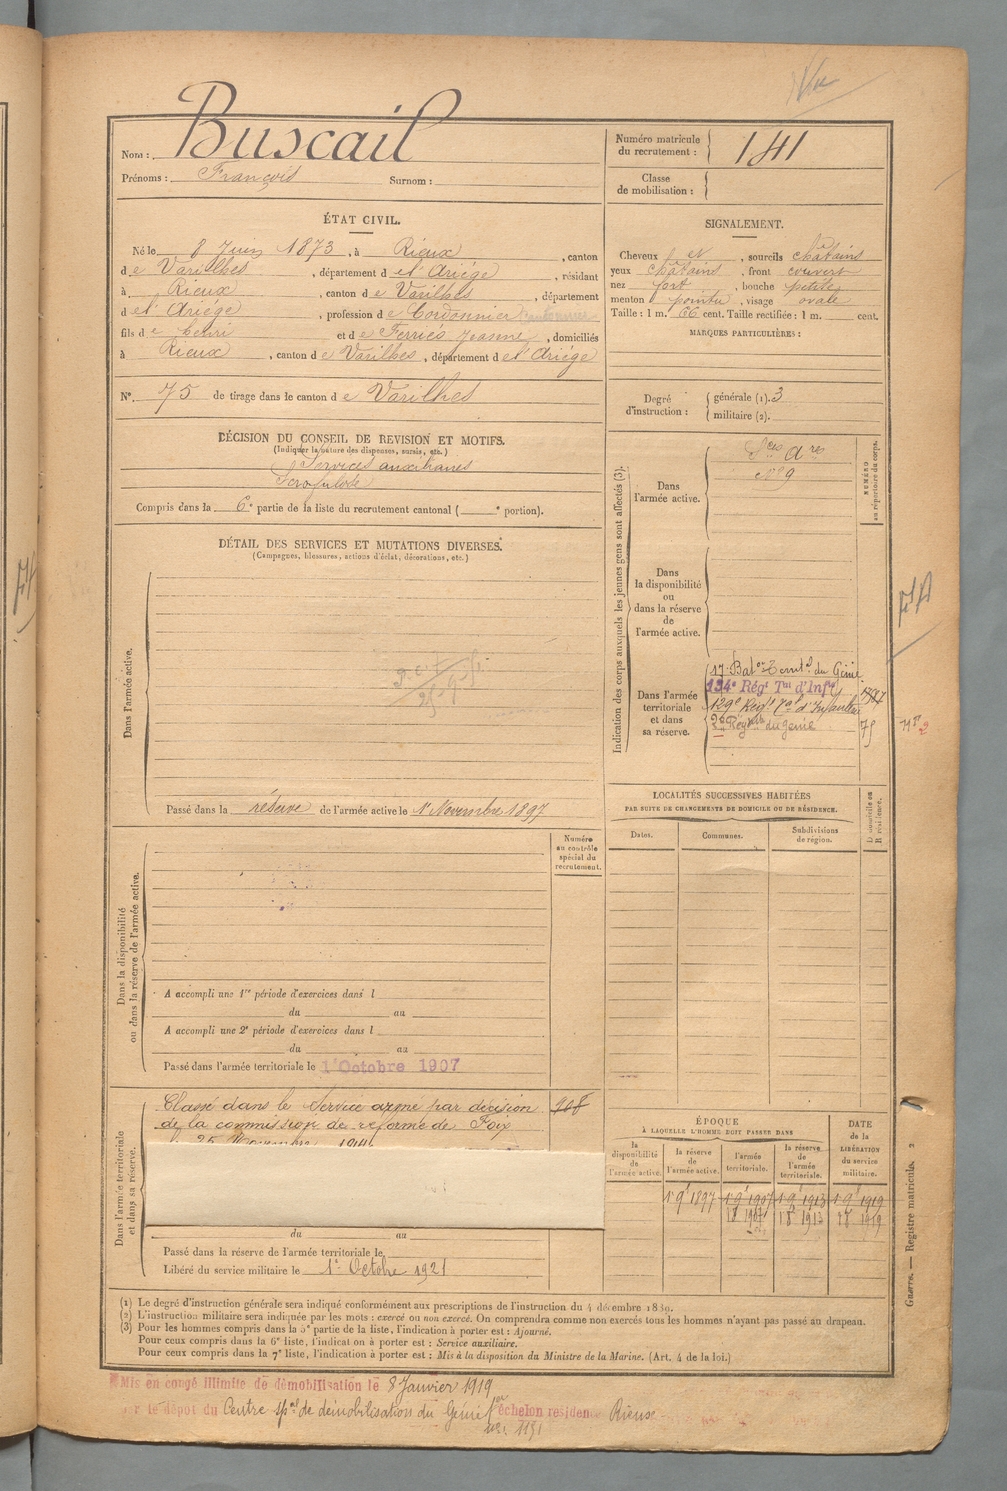 Nom : Buscail
Prénoms : François Surnom :
Numéro matricule du recrutement : 141
Classe de mobilisation :
ÉTAT CIVIL.
Né le 8 Juin 1873, à Rieux, canton
de Varilhes, département de l'Ariége, résidant
à Rieux, canton de Varilhes, département
de l'Ariége, profession de Cordonnier
fils de Henri et de Ferriés Jeanne, domiciliés
à Rieux, canton de Varilhes, département de l'Ariége
N° 75 de tirage dans le canton de Varilhes
SIGNALEMENT.
Cheveux et, sourcils châtains
yeux châtains, front couvert
nez fort, bouche petite
menton pointu, visage ovale
Taille : 1 m. 66 cent. Taille rectifiée : 1 m. cent.
MARQUES PARTICULIÈRES :
Degré d'instruction : générale (1). 3
militaire (2).
DÉCISION DU CONSEIL DE REVISION ET MOTIFS.
(Indiquer la nature des dispenses, sursis, etc.)
Services auxiliaires
Scrofulose
Compris dans la 6e partie de la liste du recrutement cantonal ( e portion).
DÉTAIL DES SERVICES ET MUTATIONS DIVERSES.
(Campagnes, blessures, actions d'éclat, décorations, etc.)
Dans l'armée active.
Passé dans la réserve de l'armée active le 1er Novembre 1897
Indication des corps auxquels les jeunes gens sont affectés (3).
NUMÉRO au répertoire du corps.
Dans l'armée active.
Sces Ares
N° 9
Dans la disponibilité ou dans la réserve de l'armée active.
Dans l'armée territoriale et dans sa réserve.
17e Baton Territal du Génie
134e Régt Tal d'Infie
129e Régt Tal d'Infanterie
2e Régt du génie
75
LOCALITÉS SUCCESSIVES HABITÉES
PAR SUITE DE CHANGEMENTS DE DOMICILE OU DE RÉSIDENCE.
Dates. Communes. Subdivisions de région. D domicile ou R résidence.
Dans la disponibilité ou dans la réserve de l'armée active.
Numéro au contrôle spécial du recrutement.
A accompli une 1re période d'exercices dans l
du au
A accompli une 2e période d'exercices dans l
du au
Passé dans l'armée territoriale le 1er Octobre 1907
Dans l'armée territoriale et dans sa réserve.
Classé dans le Service armé par décision 908
de la commission de réforme de Foix
25 Novembre 1914
du au
Passé dans la réserve de l'armée territoriale le
Libéré du service militaire le 1er Octobre 1921
ÉPOQUE
À LAQUELLE L'HOMME DOIT PASSER DANS
la disponibilité de l'armée active. la réserve de l'armée active. l'armée territoriale. la réserve de l'armée territoriale. DATE de la LIBÉRATION du service militaire.
1 9e 1897 1 9e 1907 1 9e 1913 1 9e 1919
(1) Le degré d'instruction générale sera indiqué conformément aux prescriptions de l'instruction du 4 décembre 1889.
(2) L'instruction militaire sera indiquée par les mots : exercé ou non exercé. On comprendra comme non exercés tous les hommes n'ayant pas passé au drapeau.
(3) Pour les hommes compris dans la 5e partie de la liste, l'indication à porter est : Ajourné.
Pour ceux compris dans la 6e liste, l'indication à porter est : Service auxiliaire.
Pour ceux compris dans la 7e liste, l'indication à porter est : Mis à la disposition du Ministre de la Marine. (Art. 4 de la loi.)
Guerre. — Registre matricule. 2
Mis en congé illimité de démobilisation le 8 Janvier 1919
le dépot du Centre spal de démobilisation du Génie échelon residence Rieux